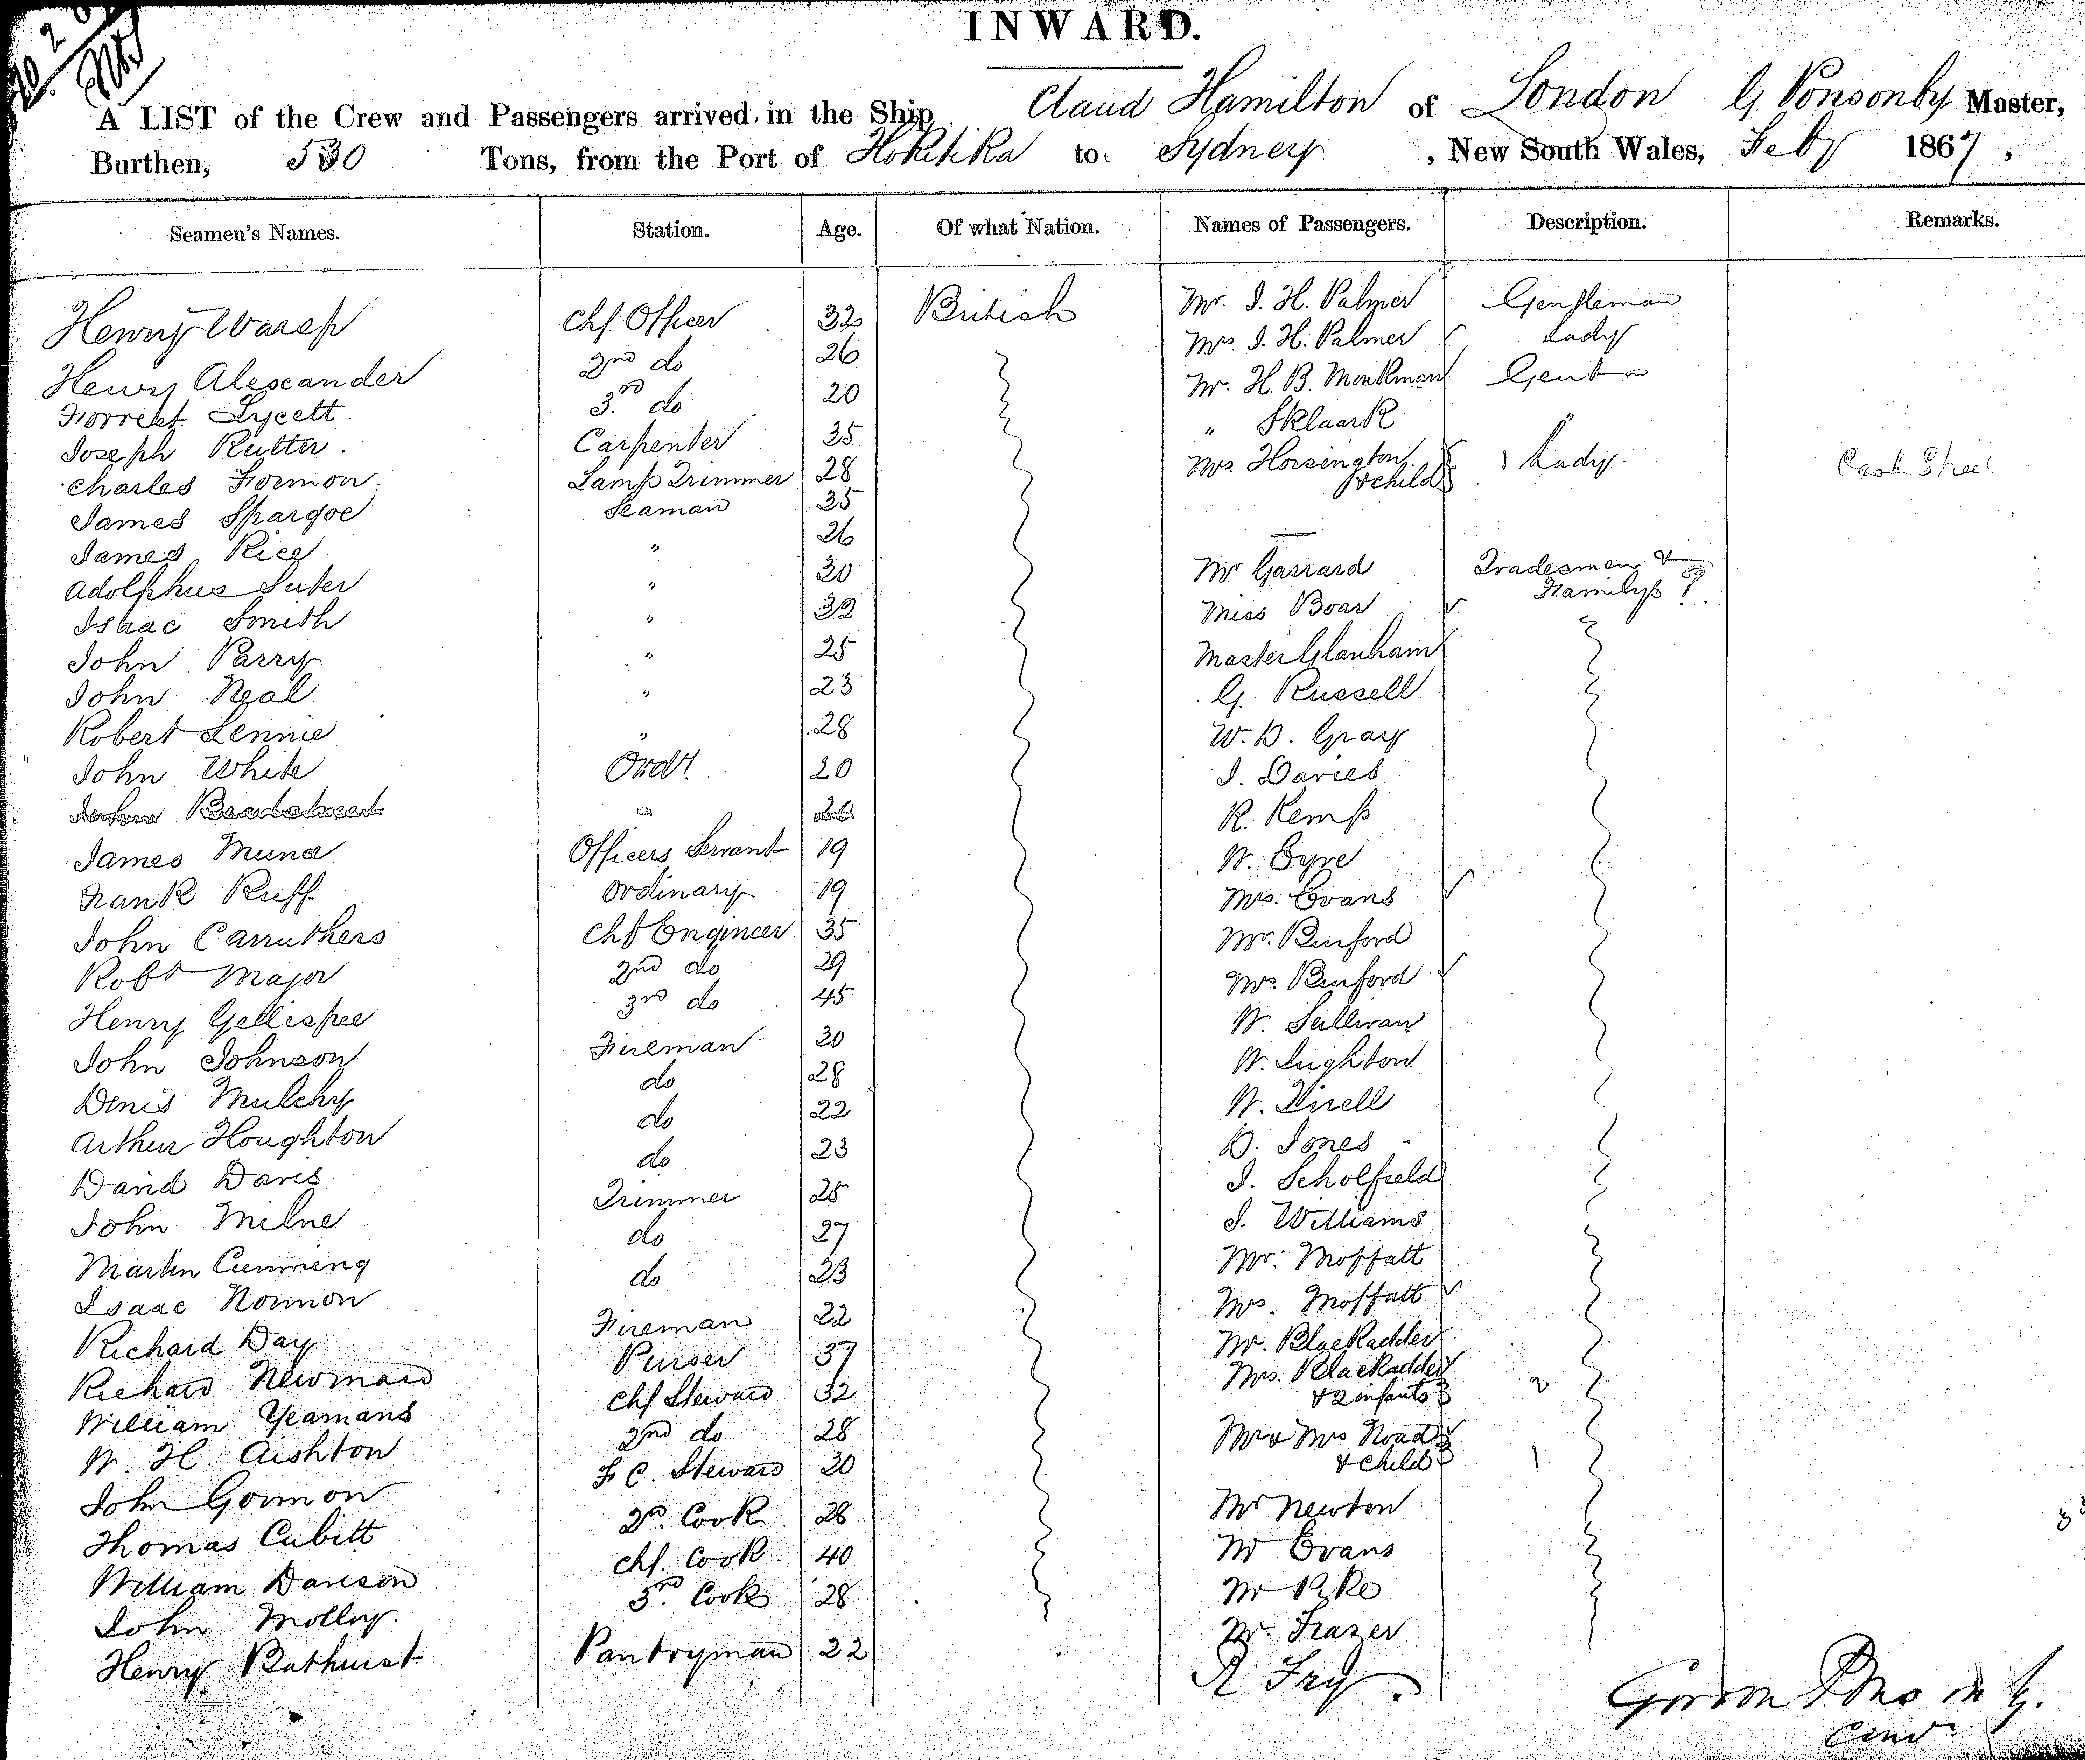 INWARD.
A LIST of the Crew and Passengers arrived in the Ship Claud Hamilton of London G Ponsonby Master,
Burthen, 530 Tons, from the Port of Hokitika to Sydney, New South Wales, Feby 1867,
Seamen's Names. Station. Age. Of what Nation. Names of Passengers. Description. Remarks.
Henry Chf. Officer 32 British Mr. J. H. Palmer Gentleman
Henry Alexander 2nd do 26 Mrs. J. H. Palmer Lady
Forrest Lycett 3rd do 20 Mr. H. B. Monkman Gent
Joseph Rutter. Carpenter 35 " Skluark
Charles Lamp Trimmer 28 Mrs Horsington & child 1 Lady
James Spargoe Seaman 35
James Rice " 26
Adolphus Suter " 30 Mr Garrard Tradesmen & Familys
Isaac Smith " 32 Miss Boar
John Parry " 25 Master Glanham
John Neal " 23 G. Russell
Robert Lennie " 28 W. D. Gray
John White Ordy 20 J. Davies
John R. Kemp
James Officers Servant 19 W. Eyre
Frank Ruff Ordinary 19 Mrs. Evans
John Carruthers Chf Engineer 35 Mr. Binford
Robt Major 2nd do 29 Mrs Binford
Henry Gellispee 3rd do 45 W. Sullivan
John Johnson Fireman 30 W. Lighton
Denis Mulchy do 28 W.
Arthur Houghton do 22 D. Jones
David Davis do 23 J. Scholfield
John Milne Trimmer 25 J. Williams
Martin Cumming do 27 Mr. Moffatt
Isaac Normon do 23 Mrs. Moffatt
Richard Day Fireman 22 Mr. Blackadder
Richard Newmand Purser 37 Mrs. Blackadder & 2 infants 2
William Yeamans Chf Steward 32
W. H. Aishton 2nd do 28 Mr & Mrs Noad & child 1
John Gormon F C. Steward 30 Mr Newton
Thomas Cubitt 2nd Cook 28 Mr Evans
William Davison Chf. Cook 40 Mr Pyke
John Molloy. 3rd Cook 28 Mr. Frazer
Henry Bathurst Pantryman 22 R Fry.